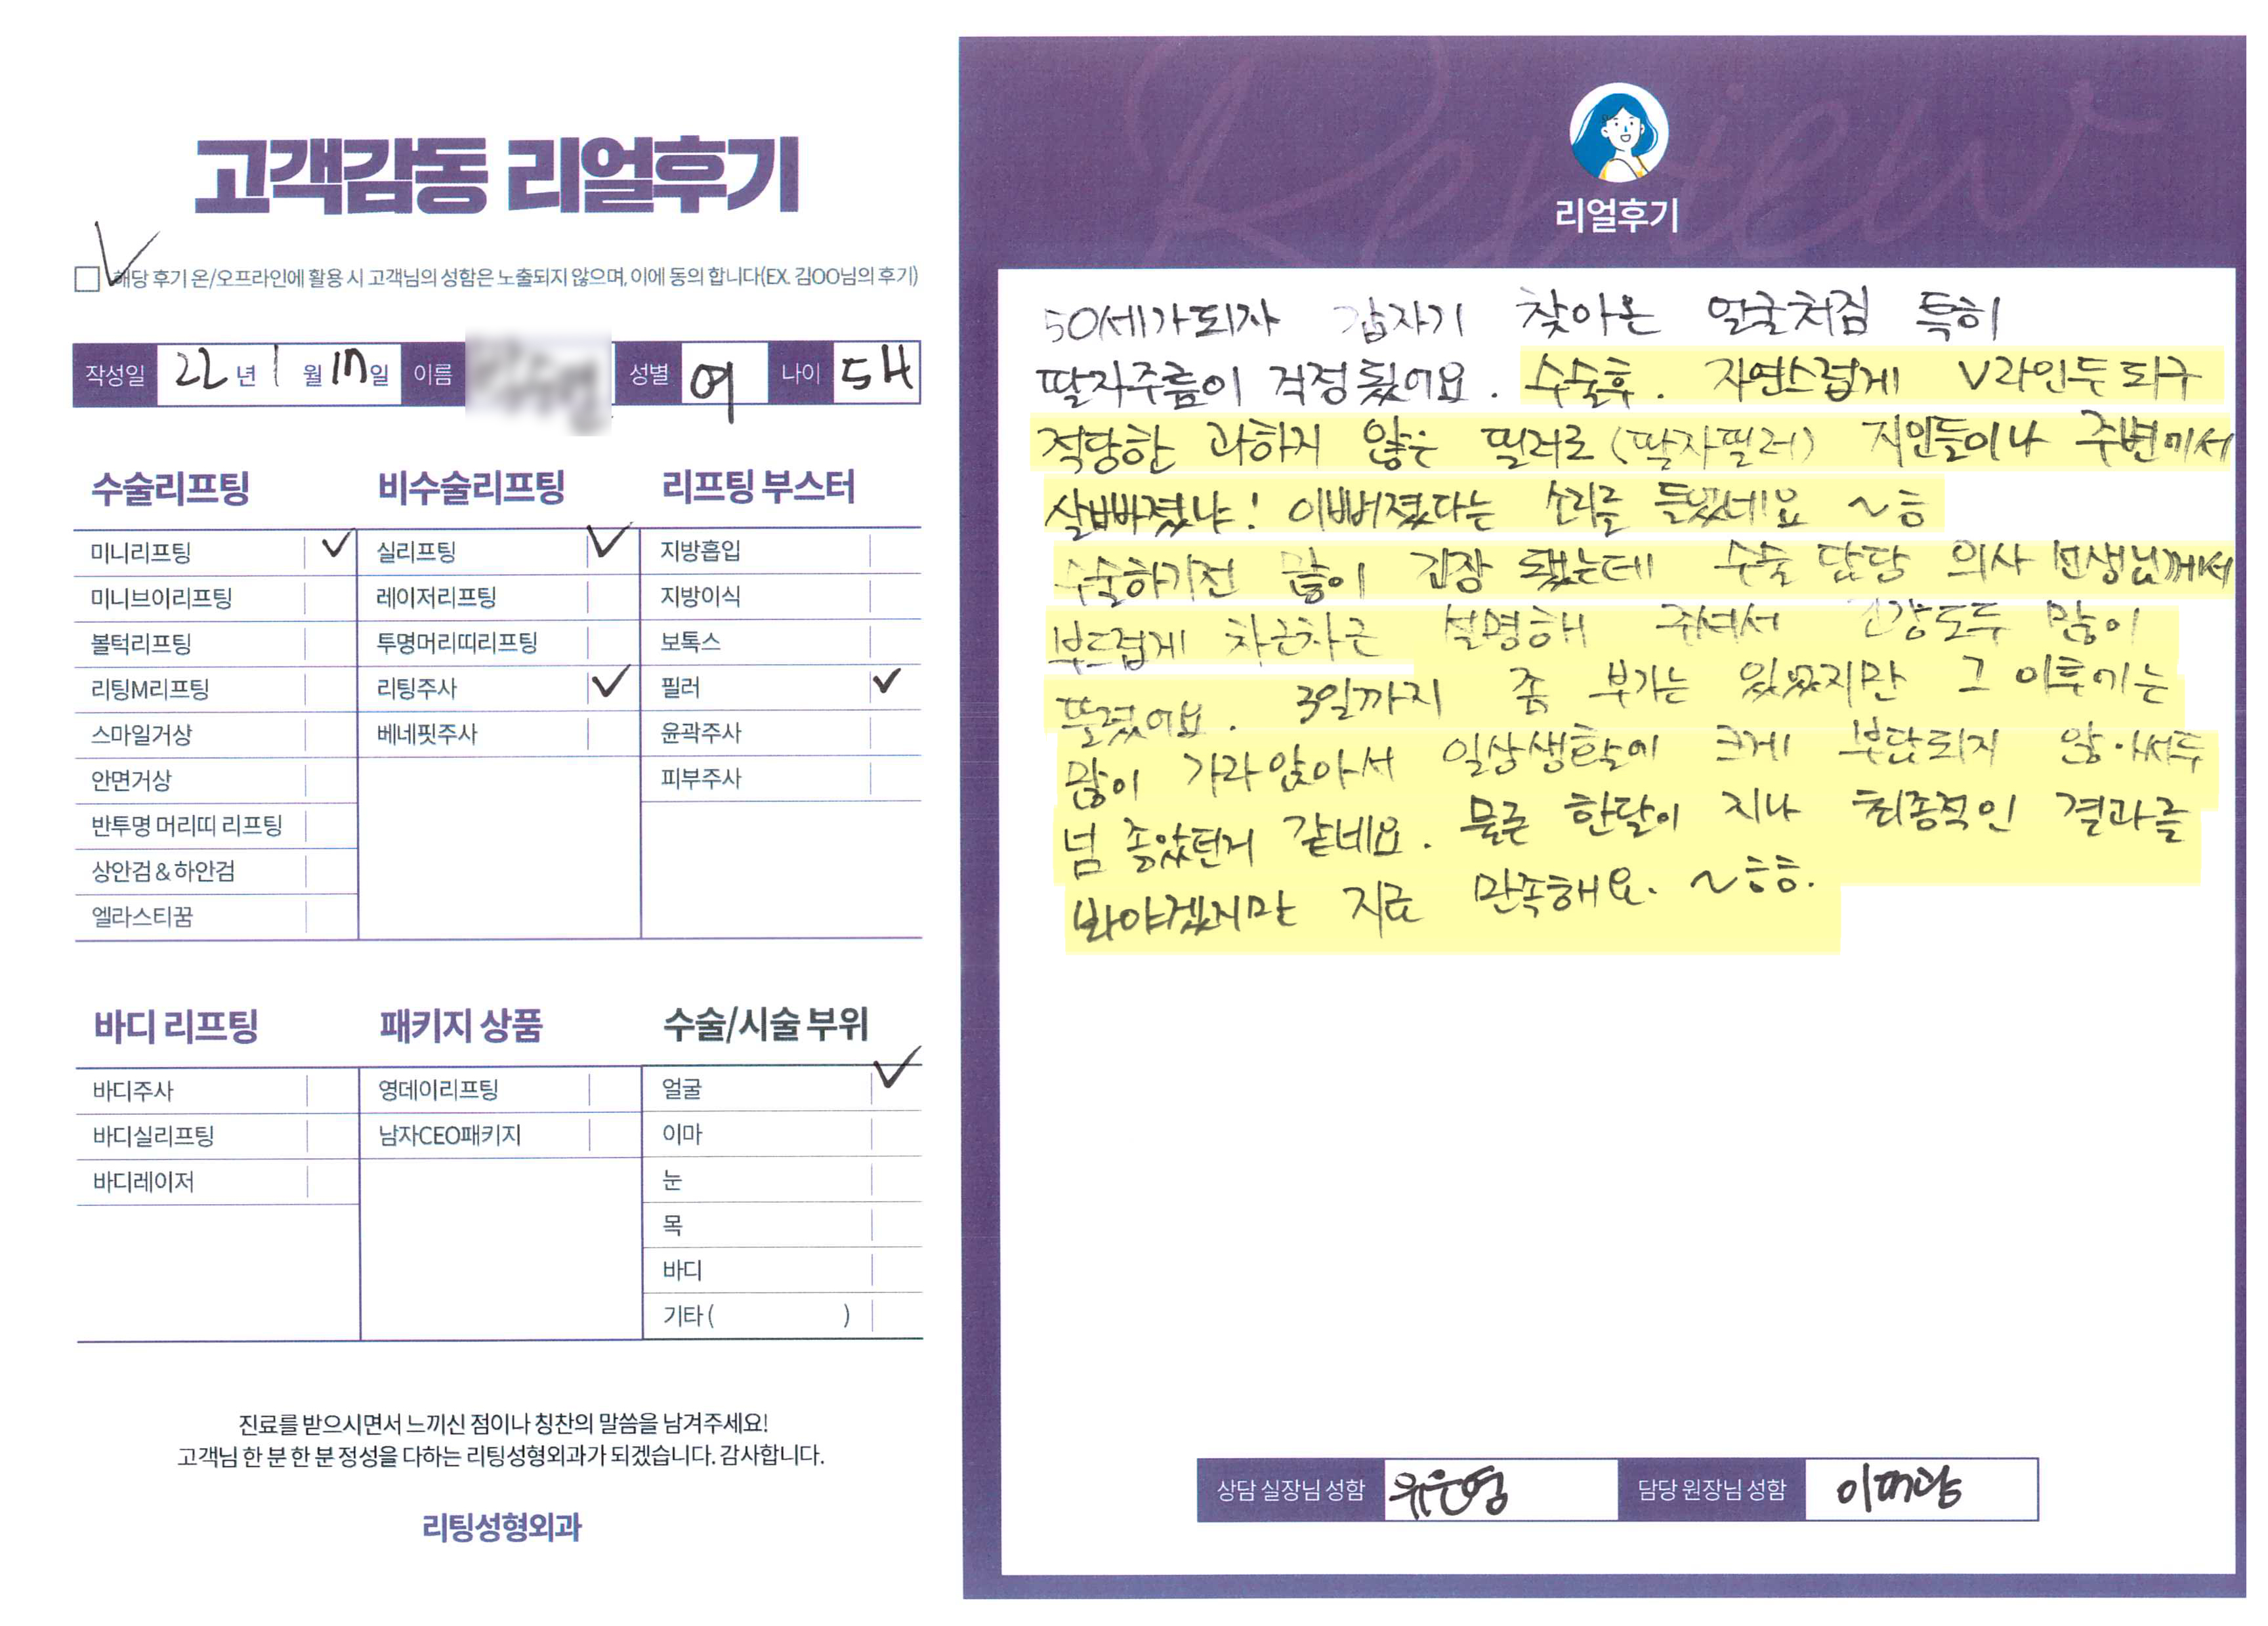 고객감동 리얼후기
해당 후기 온/오프라인에 활용 시 고객님의 성함은 노출되지 않으며, 이에 동의 합니다(EX. 김OO님의 후기)
작성일 22년 1월 17일 이름 성별 여 나이 54
수술리프팅 비수술리프팅 리프팅 부스터
미니리프팅 실리프팅 지방흡입
미니브이리프팅 레이저리프팅 지방이식
볼턱리프팅 투명머리띠리프팅 보톡스
리팅M리프팅 리팅주사 필러
스마일거상 베네핏주사 윤곽주사
안면거상 피부주사
반투명 머리띠 리프팅
상안검 & 하안검
엘라스티꿈
바디 리프팅 패키지 상품 수술/시술 부위
바디주사 영데이리프팅 얼굴
바디실리프팅 남자CEO패키지 이마
바디레이저 눈
목
바디
기타 ( )
진료를 받으시면서 느끼신 점이나 칭찬의 말씀을 남겨주세요!
고객님 한 분 한 분 정성을 다하는 리팅성형외과가 되겠습니다. 감사합니다.
리팅성형외과
Review
리얼후기
50세가되자 갑자기 찾아온 얼굴처짐 특히
팔자주름이 걱정됬어요. 수술후. 자연스럽게 V라인두 되구
적당한 과하지 않은 필러로 (팔자필러) 지인들이나 주변에서
살빠졌냐! 이뻐졌다는 소리를 들었네요 ~ㅎ
수술하기전 많이 긴장 됐는데 수술 담당 의사 선생님께서
부드럽게 차근차근 설명해 주셔서 긴장도두 많이
풀렸어요. 3일까지 좀 부기는 있었지만 그 이후에는
많이 가라앉아서 일상생활에 크게 부담되지 않아서두
넘 좋았던거 같네요. 물론 한달이 지나 최종적인 결과를
봐야겠지만 지금 만족해요. ~ㅎㅎ.
상담 실장님 성함 유은영 담당 원장님 성함